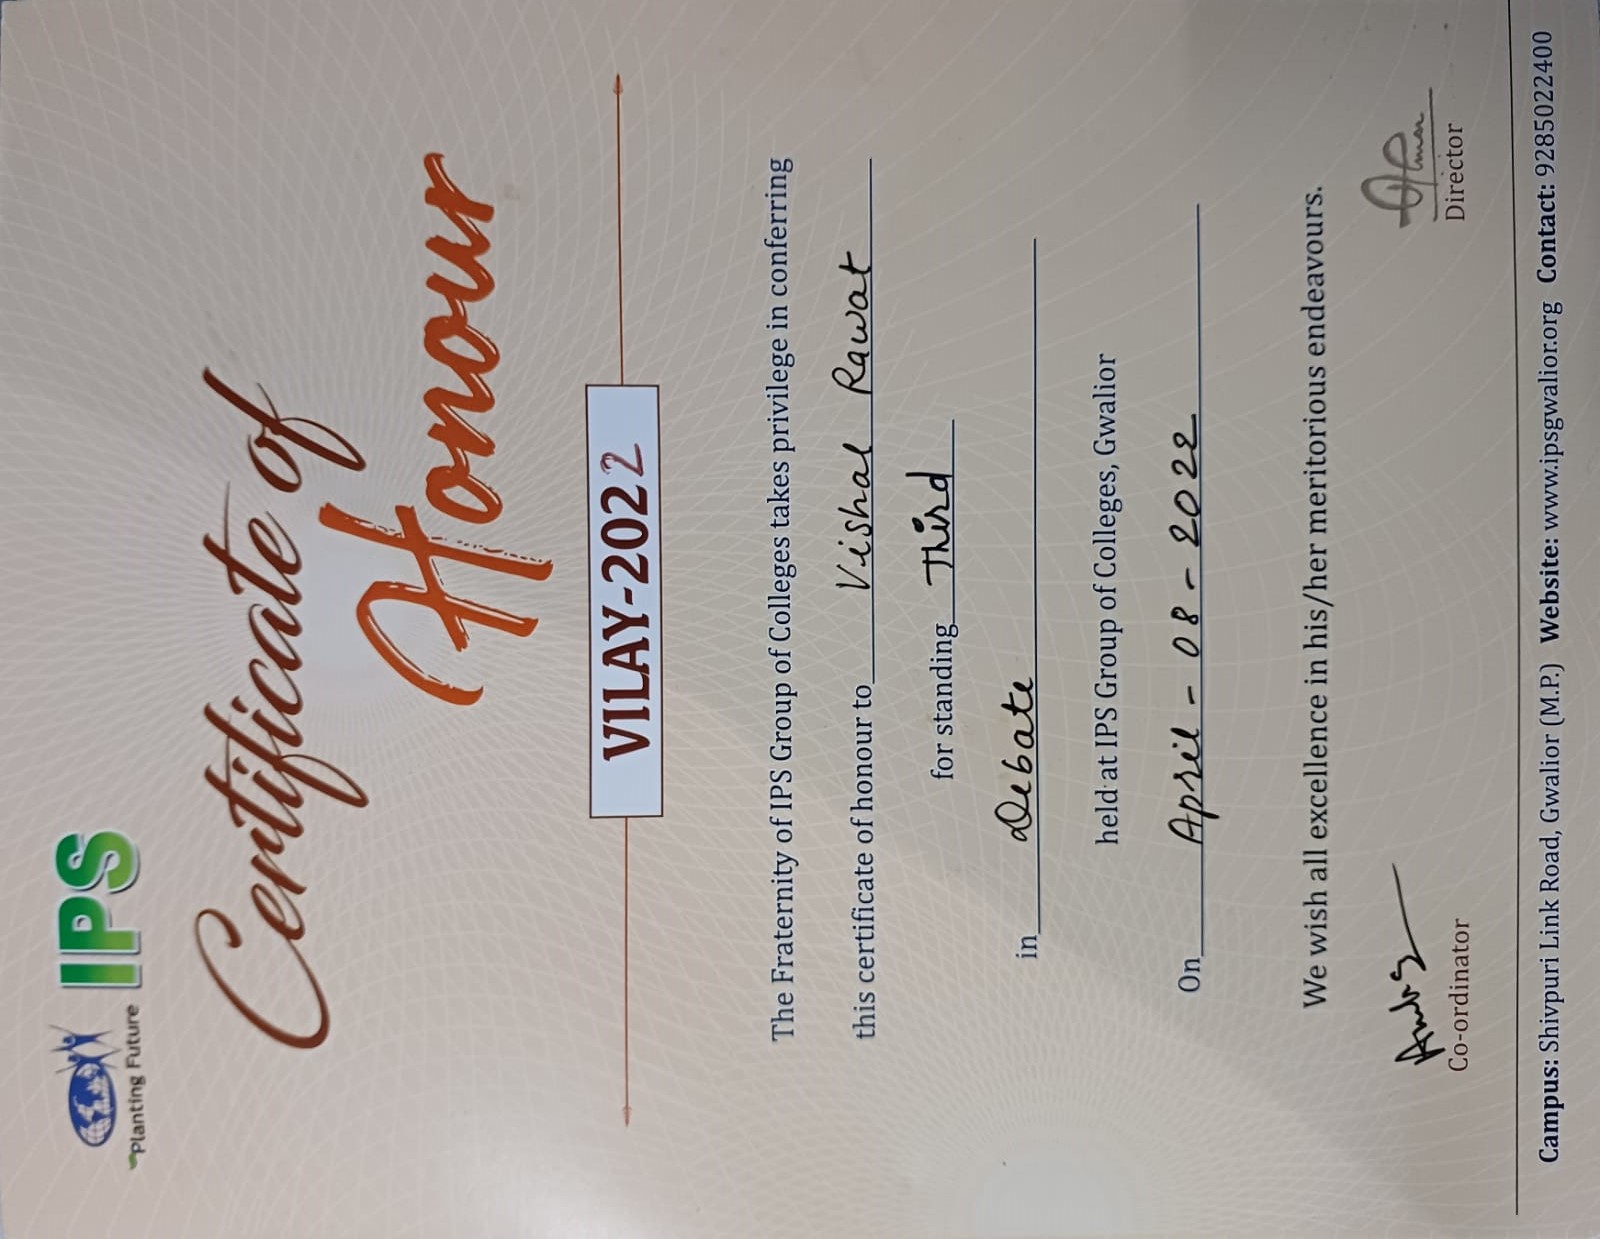 IPS
Planting Future
Certificate of
Honour
VILAY-2022
The Fraternity of IPS Group of Colleges takes privilege in conferring
this certificate of honour to Vishal Rawat
for standing Third
in Debate
held at IPS Group of Colleges, Gwalior
On April - 08 - 2022
We wish all excellence in his/her meritorious endeavours.
Co-ordinator
Director
Campus: Shivpuri Link Road, Gwalior (M.P.) Website: www.ipsgwalior.org Contact: 9285022400